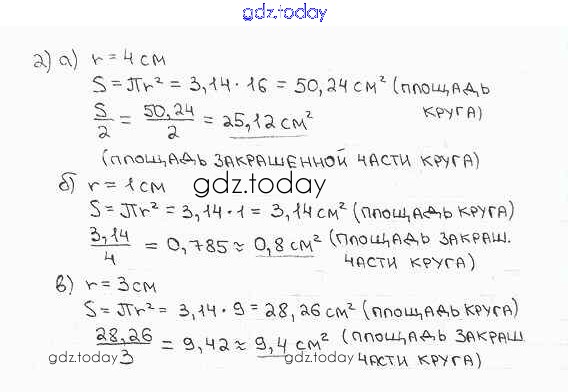 gdz.today
2) а) r = 4 см
S = πr² = 3,14 · 16 = 50,24 см² (площадь
круга)
S/2 = 50,24/2 = 25,12 см²
(площадь закрашенной части круга)
б) r = 1 см
gdz.today
S = πr² = 3,14 · 1 = 3,14 см² (площадь круга)
3,14/4 = 0,785 ≈ 0,8 см² (площадь закраш.
части круга)
в) r = 3 см
S = πr² = 3,14 · 9 = 28,26 см² (площадь круга)
28,26/3 = 9,42 ≈ 9,4 см² (площадь закраш
части круга)
gdz.today
gdz.today